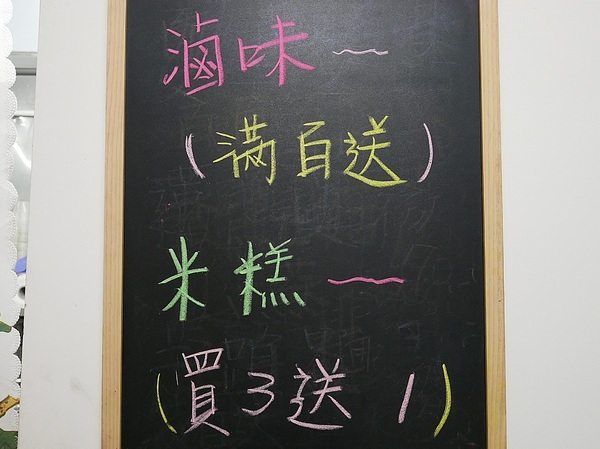 滷味~
(滿百送)
米糕~
(買3送1)